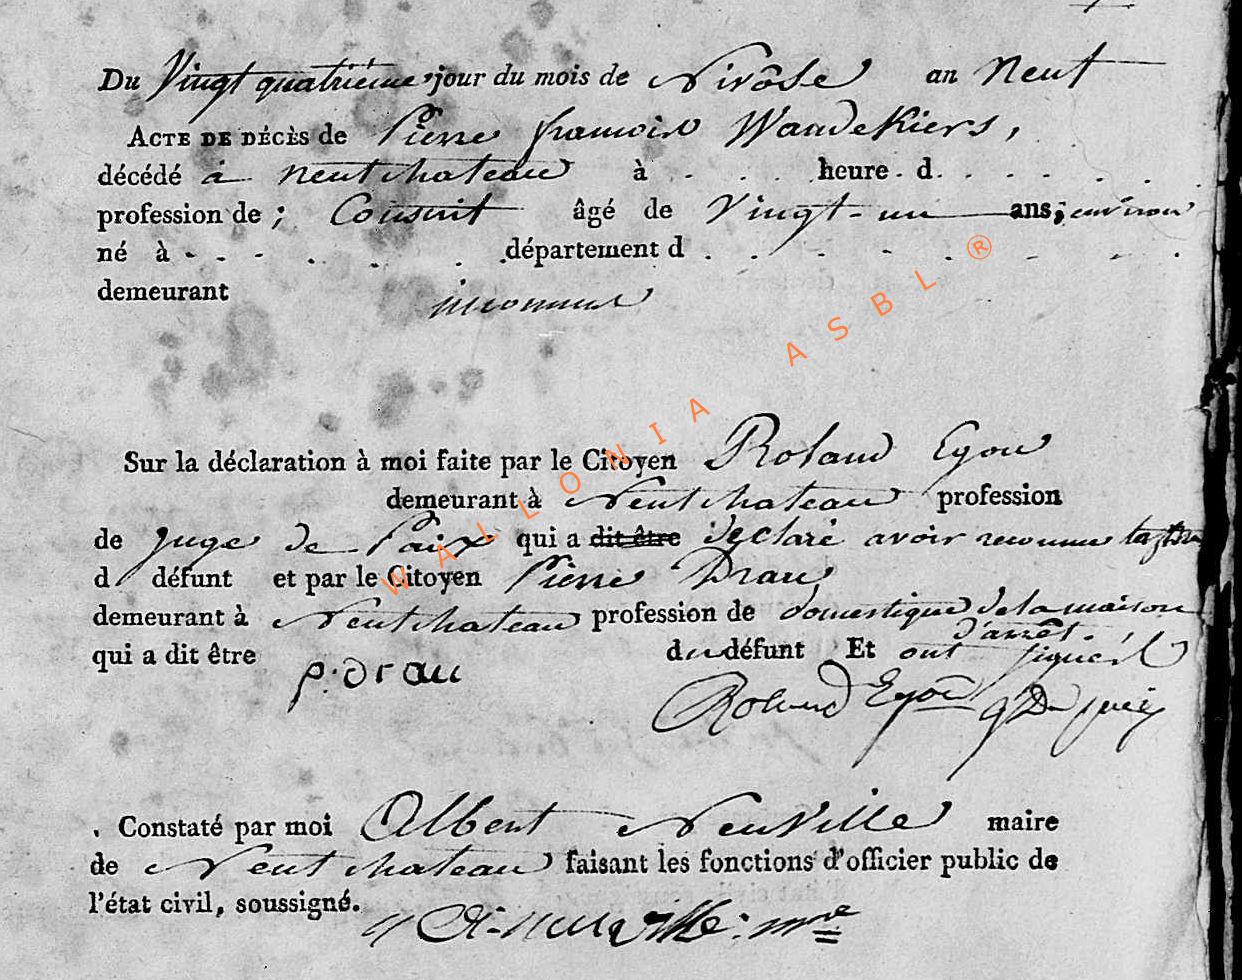 Du Vingt quatrième jour du mois de Nivôse an neuf
ACTE DE DÉCÈS de Pierre francois Wandekiers,
décédé à neufchateau à . . . heure . d . . . . . .
profession de ; Conscrit âgé de Vingt-un ans, environ
né à . . . . . . . département d . . . . . . .
demeurant inconnue
Sur la déclaration à moi faite par le Citoyen Roland Egon
demeurant à Neufchateau profession
de juge de Paix qui a dit être declaré avoir reconnu
d défunt et par le Citoyen Pierre Drau
demeurant à Neufchateau profession de domestique de la maison
d'arrêt.
qui a dit être du défunt Et ont signés
p. drau
Roland Egon
Constaté par moi Albert Neuville maire
de Neufchateau faisant les fonctions d'officier public de
l'état civil, soussigné.
A: neuville: mre
WALLONIA ASBL ®